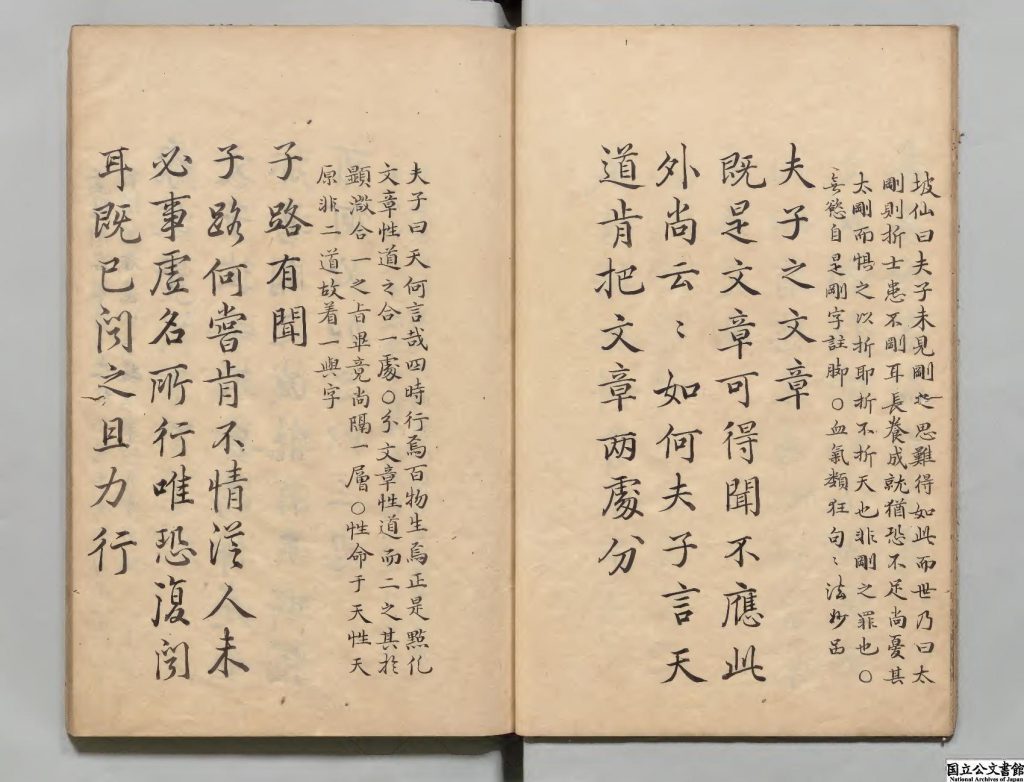 坡仙曰夫子未見剛迠思難得如此而世乃曰太
剛則折士患不剛耳長養成就猶恐不足尚憂其
太剛而惧之以折耶折不折天也非剛之罪也○
無慾自是剛字註脚○血氣類狂句〻法妙品
夫子之文章
既是文章可得聞不應此
外尚云〻如何夫子言天
道肯把文章两處分
夫子曰天何言哉四時行焉百物生焉正是點化
文章性道之合一處○分文章性道而二之其於
顯微合一之旨畢竟尚隔一層○性命于天性天
原非二道故着一與字
子路有聞
子路何嘗肯不情從人未
必事虛名所行唯恐復聞
耳既已聞之且力行
国立公文書館
National Archives of Japan